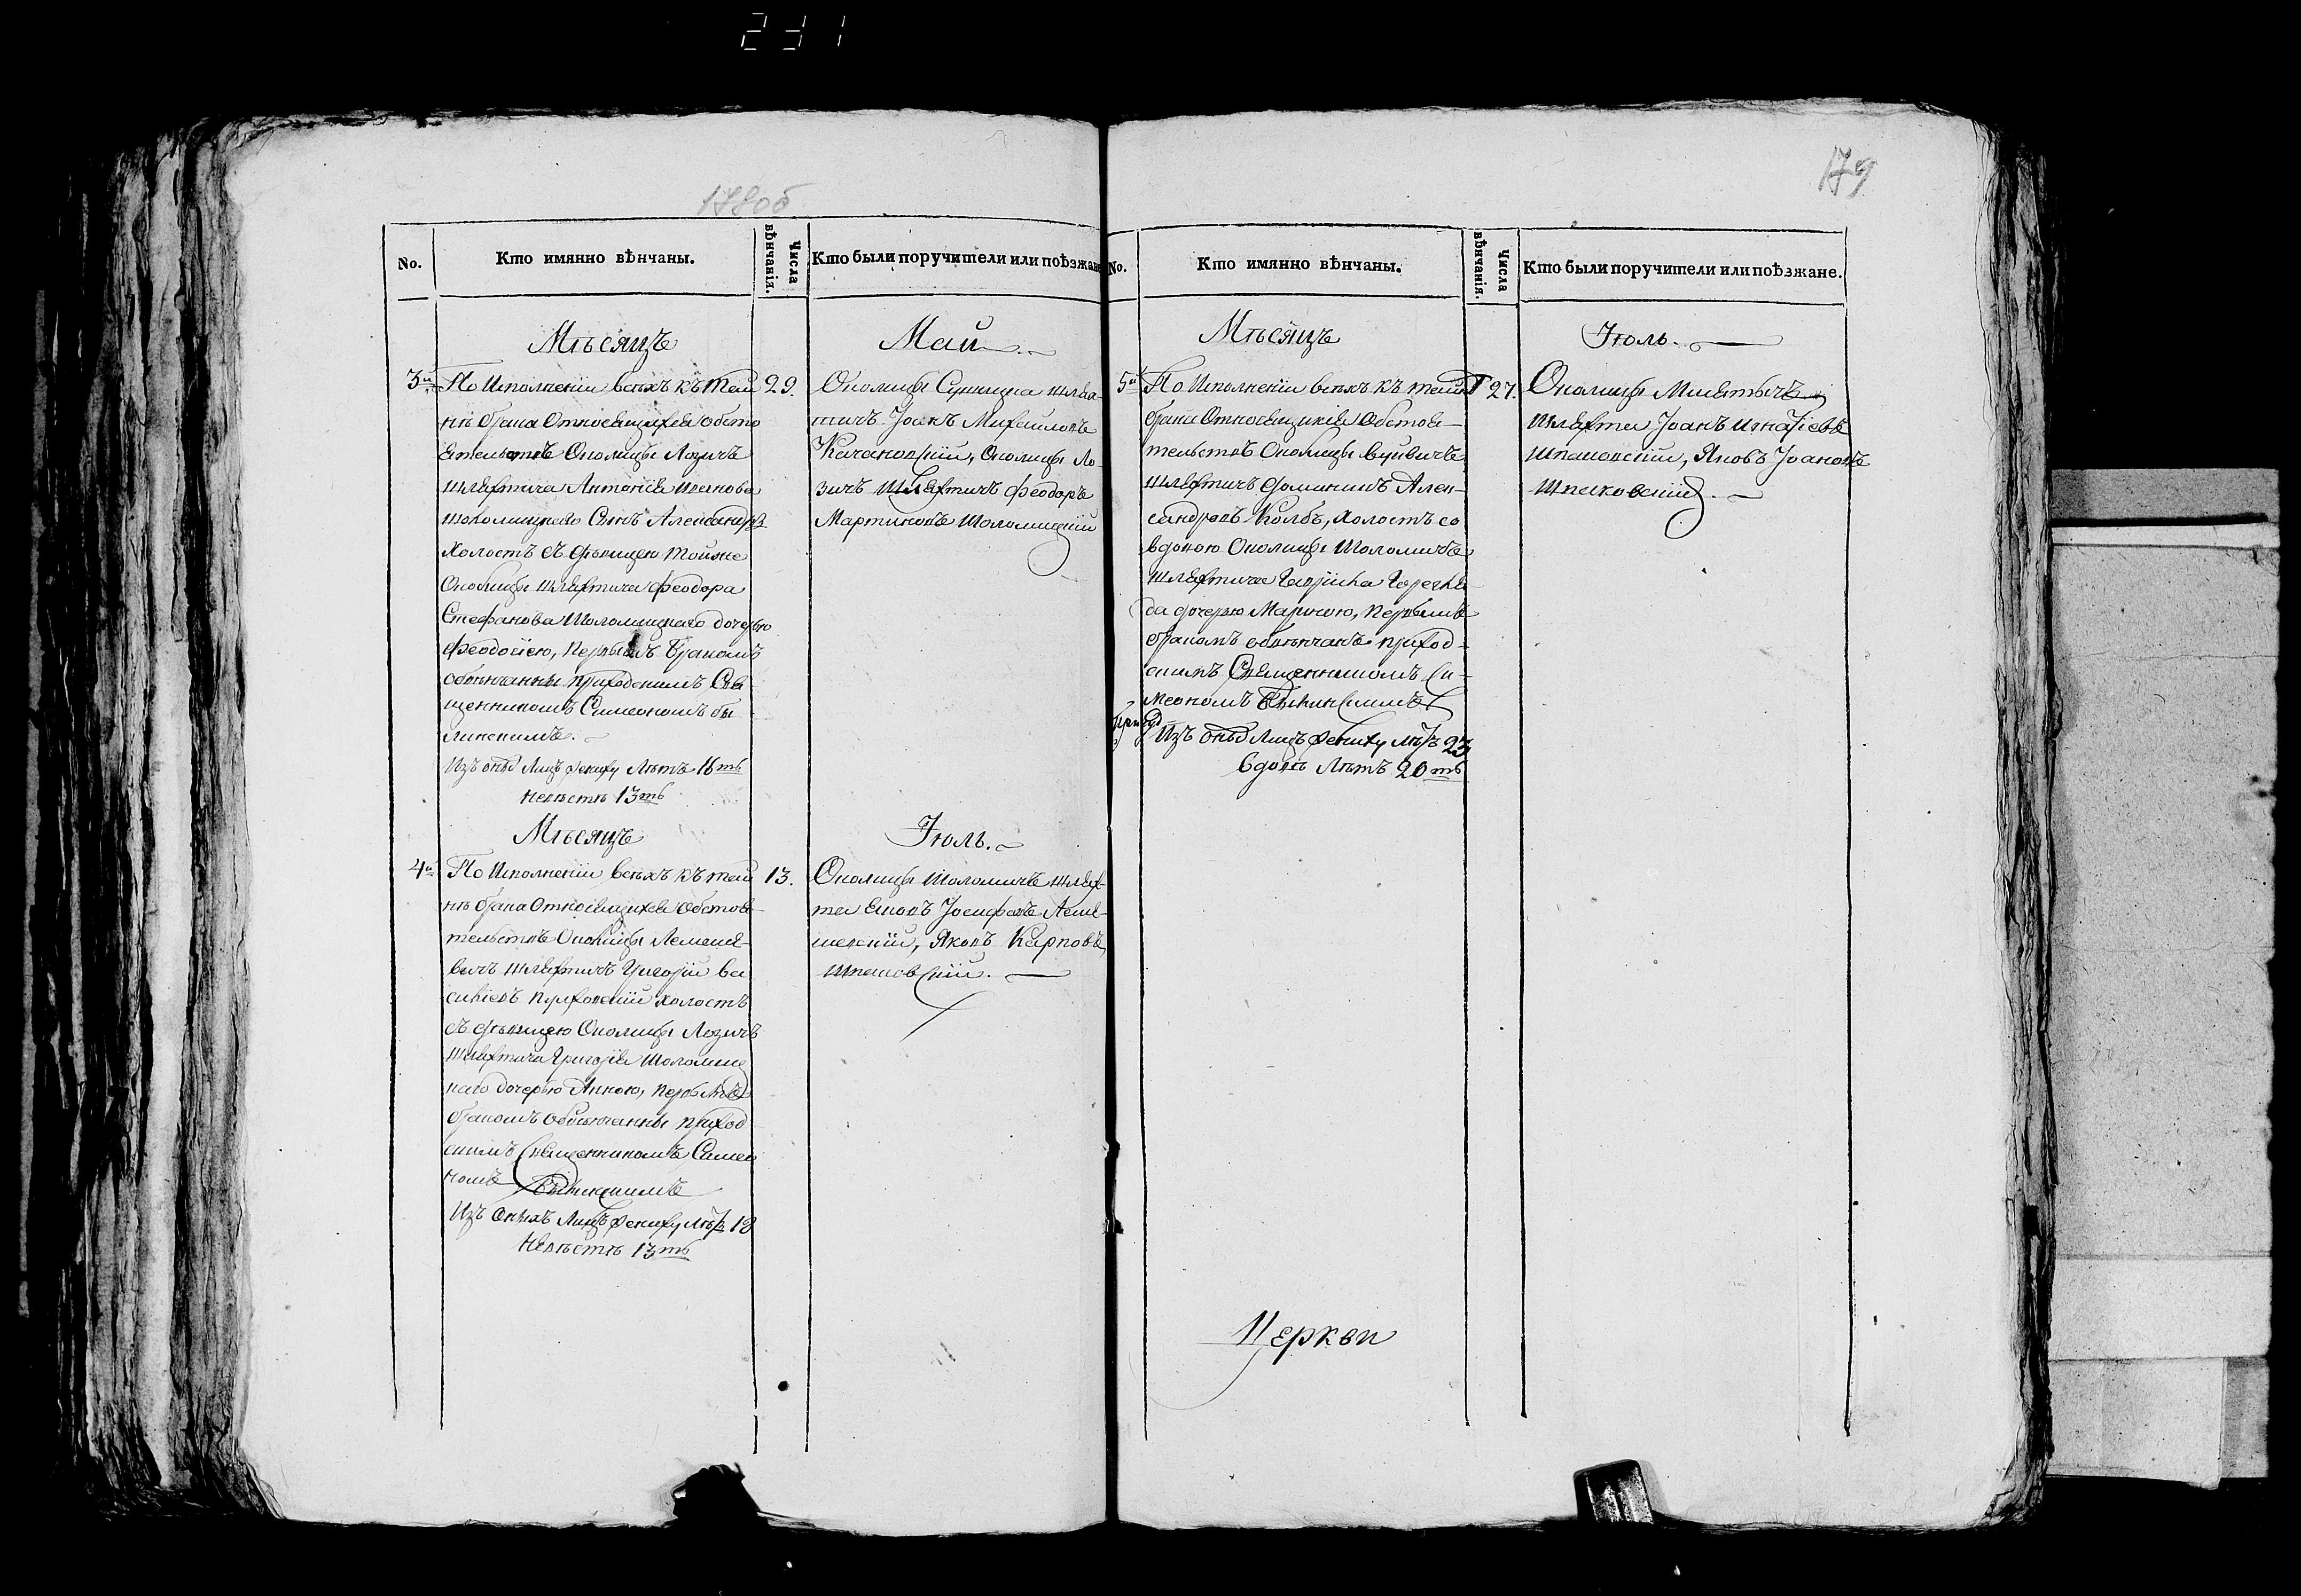 231
178об
179
No.
Кто имянно вѣнчаны.
Числа
вѣнчанія.
Кто были поручители или поѣзжане
Мѣсяцъ
Май
3й
По Исполненіи всѣхъ къ тай
22.
нѣ брака Относящихся обсто
ятельствъ Околицы Лозичъ
шляхтича Антонія
Сынъ Александръ
Холостъ съ дѣвицею тойже
Околицы шляхтича Феодора
Стефанова Шоломицкаго дочерью
Феодосіею, первымъ бракомъ
обвѣнчанны приходскимъ Свя
щенникомъ Симеономъ Бы
линскимъ.
Изъ оныхъ лицъ жениху лѣтъ 16ть
невѣстѣ 13ть
Околицы шлях
тичъ Іоанъ Михайловъ
Качановскій, Околицы Ло
зичъ Шляхтичъ Феодоръ
Мартиновъ Шоломицкій
Мѣсяцъ
Іюль.
4й
По Исполненіи всѣхъ къ тай
13.
нѣ брака Относящихся обстоя
тельствъ Околицы
вичъ шляхтичъ Григорій Ва
силіевъ холостъ
съ дѣвицею Околицы Лозичъ
шляхтича Григорія Шоломиц
каго дочерью Анною, первымъ
бракомъ обвѣнчанны приход
скимъ Священникомъ Симео
номъ Былинскимъ
Изъ оныхъ лицъ жениху лѣтъ 18
невѣстѣ 13ть
Околицы Шоломичъ шлях
та Іосифовъ
Яковъ Карповъ
Шпаковскій.
No.
Кто имянно вѣнчаны.
Числа
вѣнчанія.
Кто были поручители или поѣзжане.
Мѣсяцъ
Іюль.
5й
По Исполненіи всѣхъ къ тайнѣ
27.
брака Относящихся обстоя
тельствъ Околицы
шляхтичъ Доминикъ Алек
сандровъ Колбъ, холостъ со
вдовою Околицы Шоломичъ
шляхтича
дочерью Марiею, первымъ
бракомъ обвѣнчанъ приход
скимъ Священникомъ Си
меономъ Былинскимъ
Изъ оныхъ лицъ жениху лѣтъ 23
вдовѣ лѣтъ 20ть
Околицы
шляхта Іоанъ Игнатіевъ
Шпаковскій, Яковъ Іоановъ
Шпаковскій.
Церкви